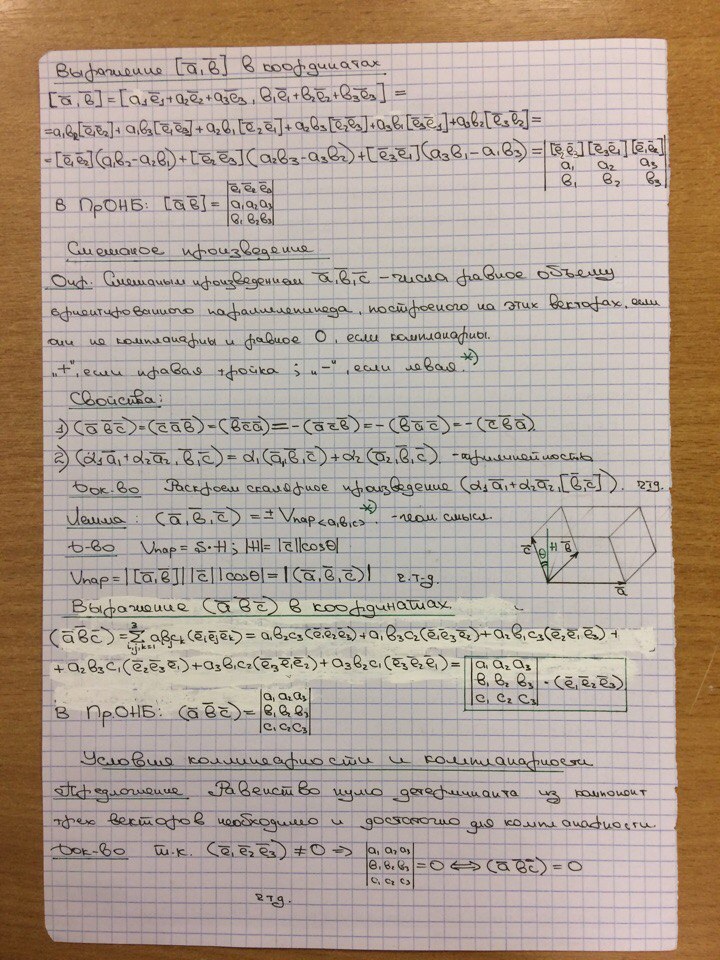 Выражение [ā,b̄] в координатах
[ā,b̄]=[a₁ē₁+a₂ē₂+a₃ē₃, b₁ē₁+b₂ē₂+b₃ē₃]=
=a₁b₂[ē₁ē₂]+a₁b₃[ē₁ē₃]+a₂b₁[ē₂ē₁]+a₂b₃[ē₂ē₃]+a₃b₁[ē₃ē₁]+a₃b₂[ē₃ē₂]=
=[ē₁ē₂](a₁b₂-a₂b₁)+[ē₂ē₃](a₂b₃-a₃b₂)+[ē₃ē₁](a₃b₁-a₁b₃)= |[ē₂ē₃] [ē₃ē₁] [ē₁ē₂]|
|a₁ a₂ a₃|
|b₁ b₂ b₃|
|ē₁ ē₂ ē₃|
В ПрОНБ: [āb̄]= |a₁ a₂ a₃|
|b₁ b₂ b₃|
Смешаное произведение
Опр. Смешаным произведением ā,b̄,c̄ - числа равное объему
ориентированного параллелепипеда, построеного на этих векторах, если
они не компланарны и равное 0, если компланарны.
„+“, если правая тройка ; „-“, если левая. *)
Свойства:
1) (āb̄c̄)=(c̄āb̄)=(b̄c̄ā)=-(āc̄b̄)=-(b̄āc̄)=-(c̄b̄ā)
2) (α₁ā₁+α₂ā₂,b̄,c̄)=α₁(ā₁,b̄,c̄)+α₂(ā₂,b̄,c̄). -трилинейность
Док-во Раскроем скалярное произведение (α₁ā₁+α₂ā₂,[b̄,c̄]). ч.т.д.
Лемма: (ā,b̄,c̄)=± Vпар<a,b,c> *). -геом смысл
Д-во Vпар=S·H; |H|=|c̄||cosθ|
c̄ θ H b̄
Vпар=|[ā,b̄]||c̄||cosθ|=|(ā,b̄,c̄)| ч.т.д.
ā
Выражение (āb̄c̄) в координатах.
(āb̄c̄)=∑³i,j,k=1 aᵢbⱼcₖ(ēᵢēⱼēₖ)=a₁b₂c₃(ē₁ē₂ē₃)+a₁b₃c₂(ē₁ē₃ē₂)+a₂b₁c₃(ē₂ē₁ē₃)+
+a₂b₃c₁(ē₂ē₃ē₁)+a₃b₁c₂(ē₃ē₁ē₂)+a₃b₂c₁(ē₃ē₂ē₁)= |a₁ a₂ a₃|
|b₁ b₂ b₃| · (ē₁ē₂ē₃)
|c₁ c₂ c₃|
|a₁ a₂ a₃|
В ПрОНБ: (āb̄c̄)= |b₁ b₂ b₃|
|c₁ c₂ c₃|
Условия коллинеарности и компланарности
Предложение Равенство нулю детерминанта из компонент
трех векторов необходимо и достаточно для компланарности.
Док-во Т.к. (ē₁ē₂ē₃)≠0 ⇒ |a₁ a₂ a₃|
|b₁ b₂ b₃| =0 ⟺ (āb̄c̄)=0
|c₁ c₂ c₃|
ч.т.д.